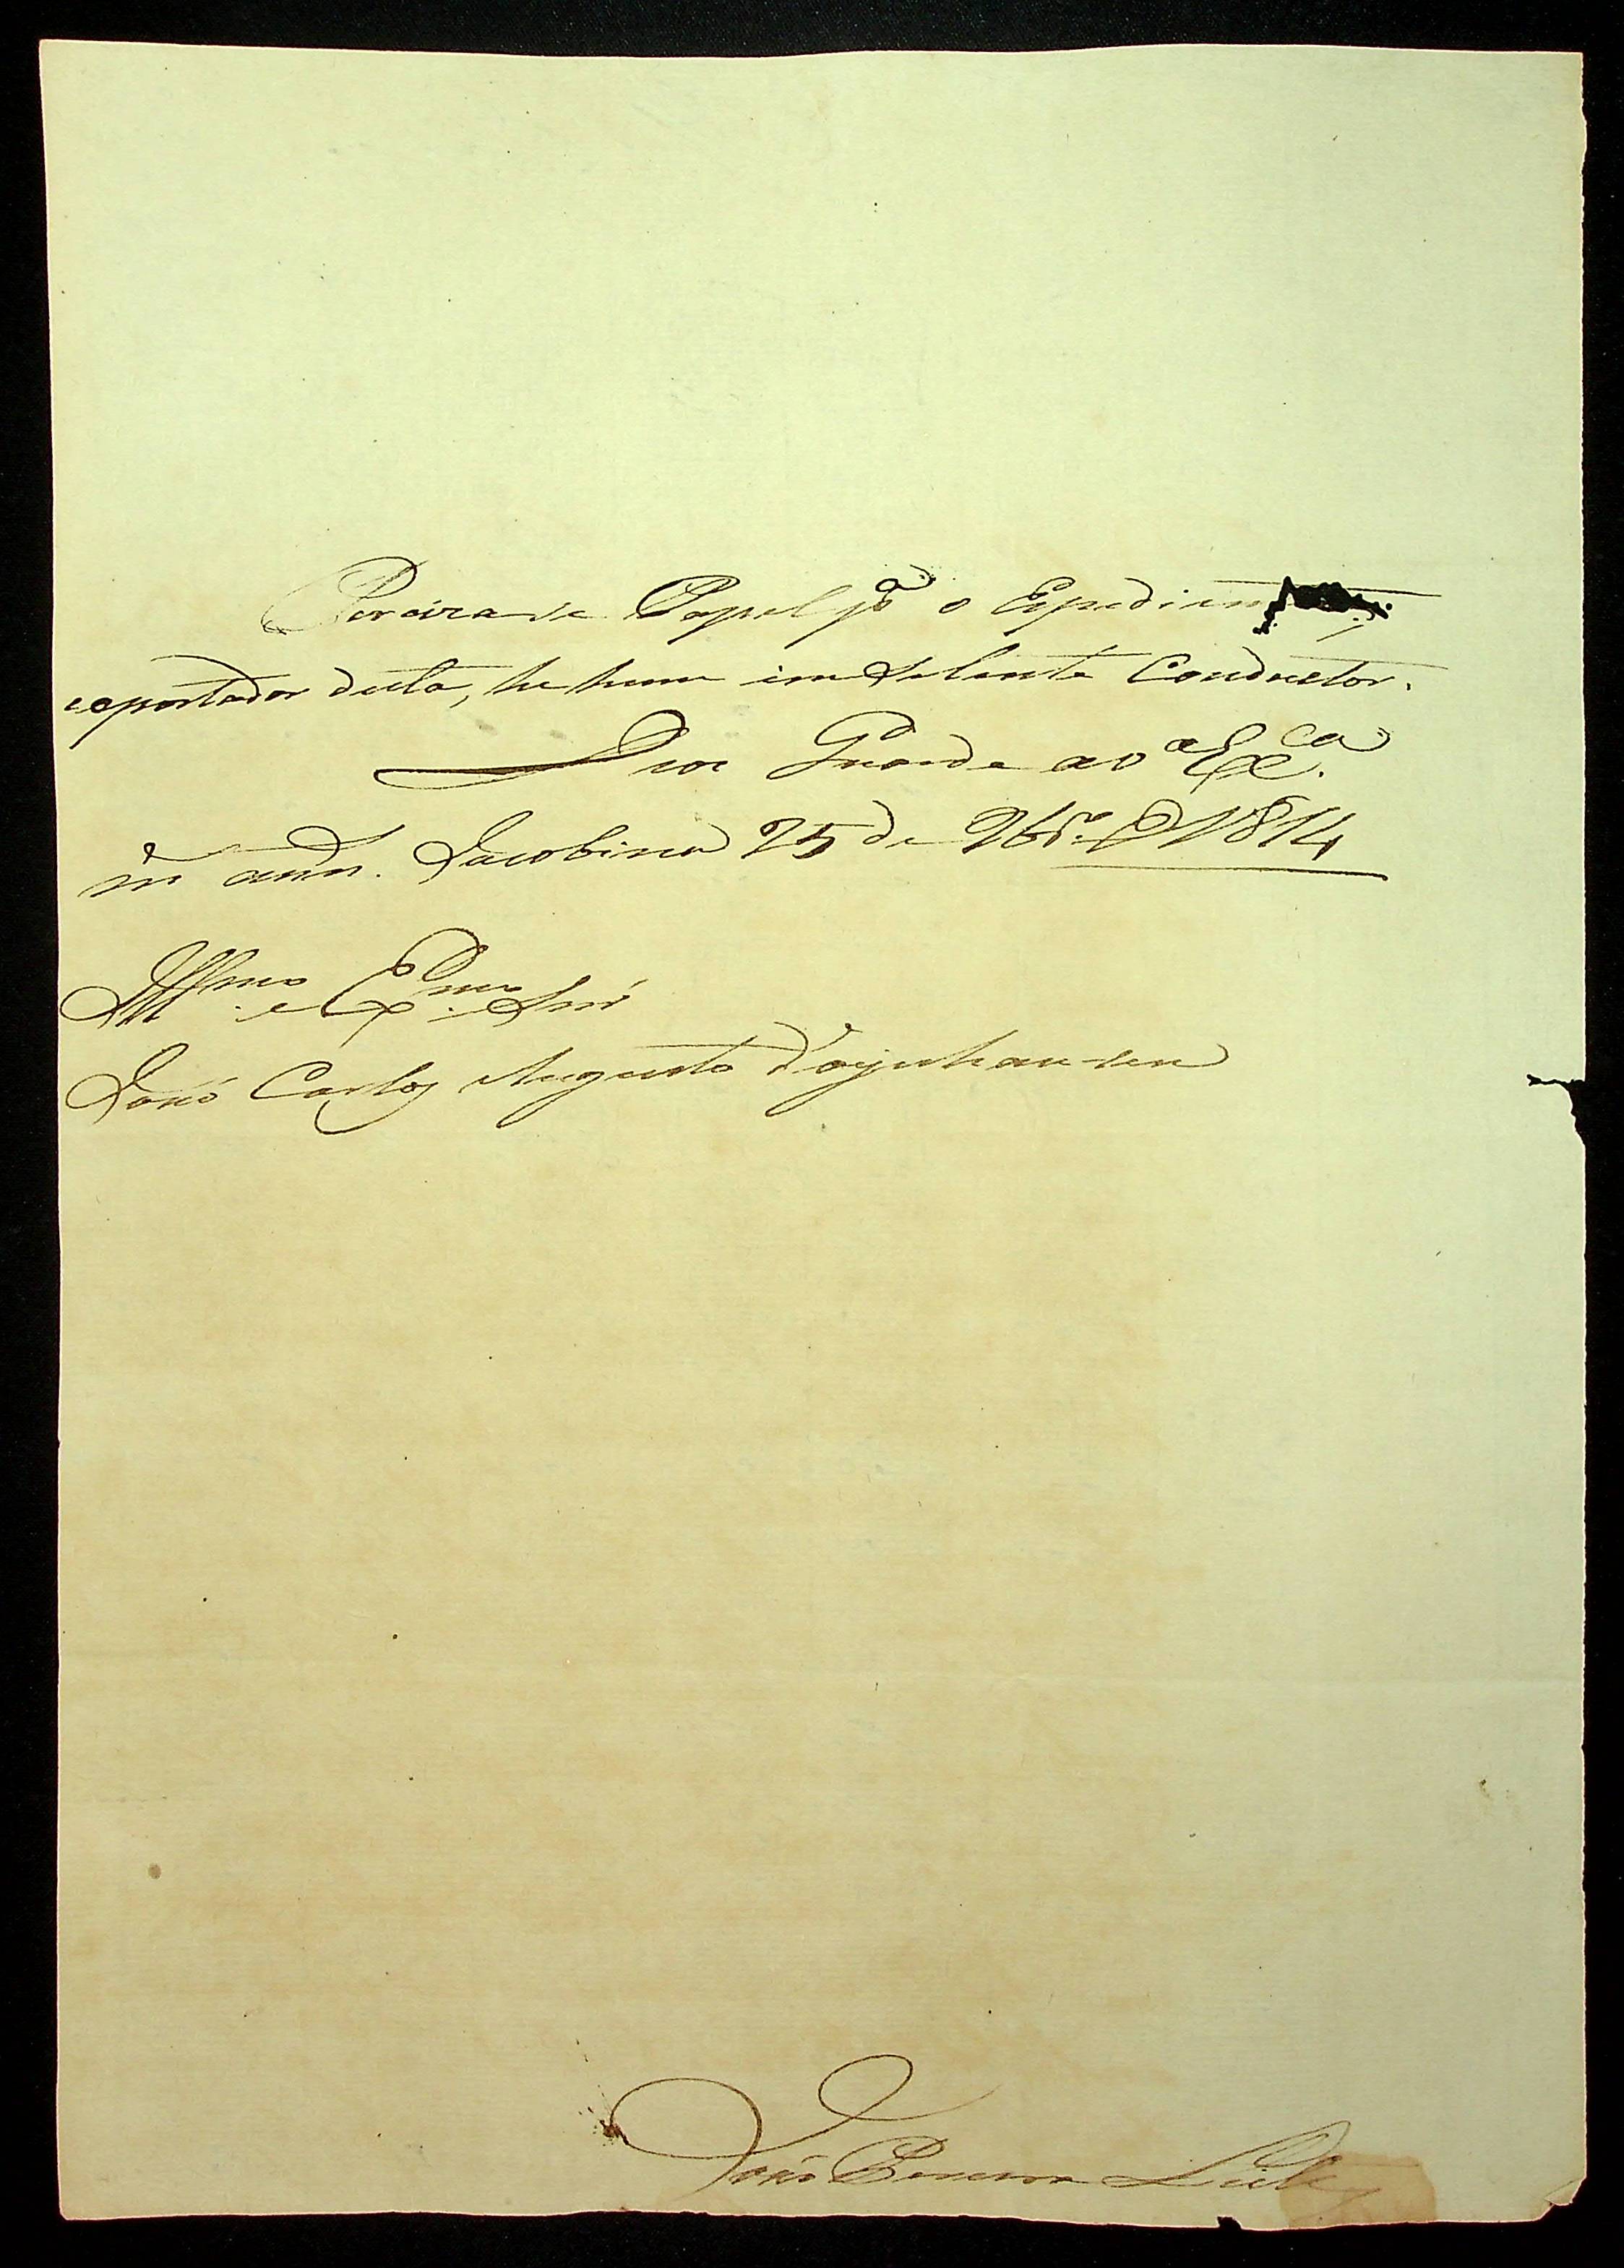 Perciza se Papel pª o Espedien
e o portador desta, he hum imselente Conductor.
Deos Guarde a Vª Exca.
mˢ anns. Jacobina 25 de 9brº. de 1814
Illmo. e Exmo. Snr
João Carlos Augusto d'oeynhausen
João Pereira Leite